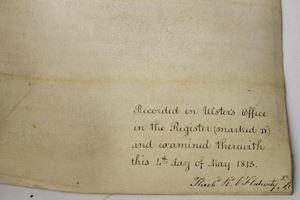 Recorded in Ulster's Office
in the Register (marked D)
and examined therewith
this 4th day of May 1813.